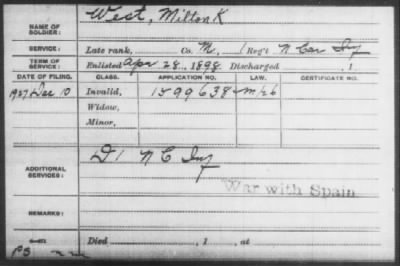 NAME OF SOLDIER: West, Milton K
SERVICE: Late rank, Co. M, 1 Reg't N Car Inf
TERM OF SERVICE: Enlisted Apr 28, 1898 Discharged , 1
DATE OF FILING. CLASS. APPLICATION NO. LAW. CERTIFICATE NO.
1927 Dec 10 Invalid, 1599638 m/26
Widow,
Minor,
ADDITIONAL SERVICES: D 1 N C Inf
War with Spain
REMARKS:
Died , 1 , at